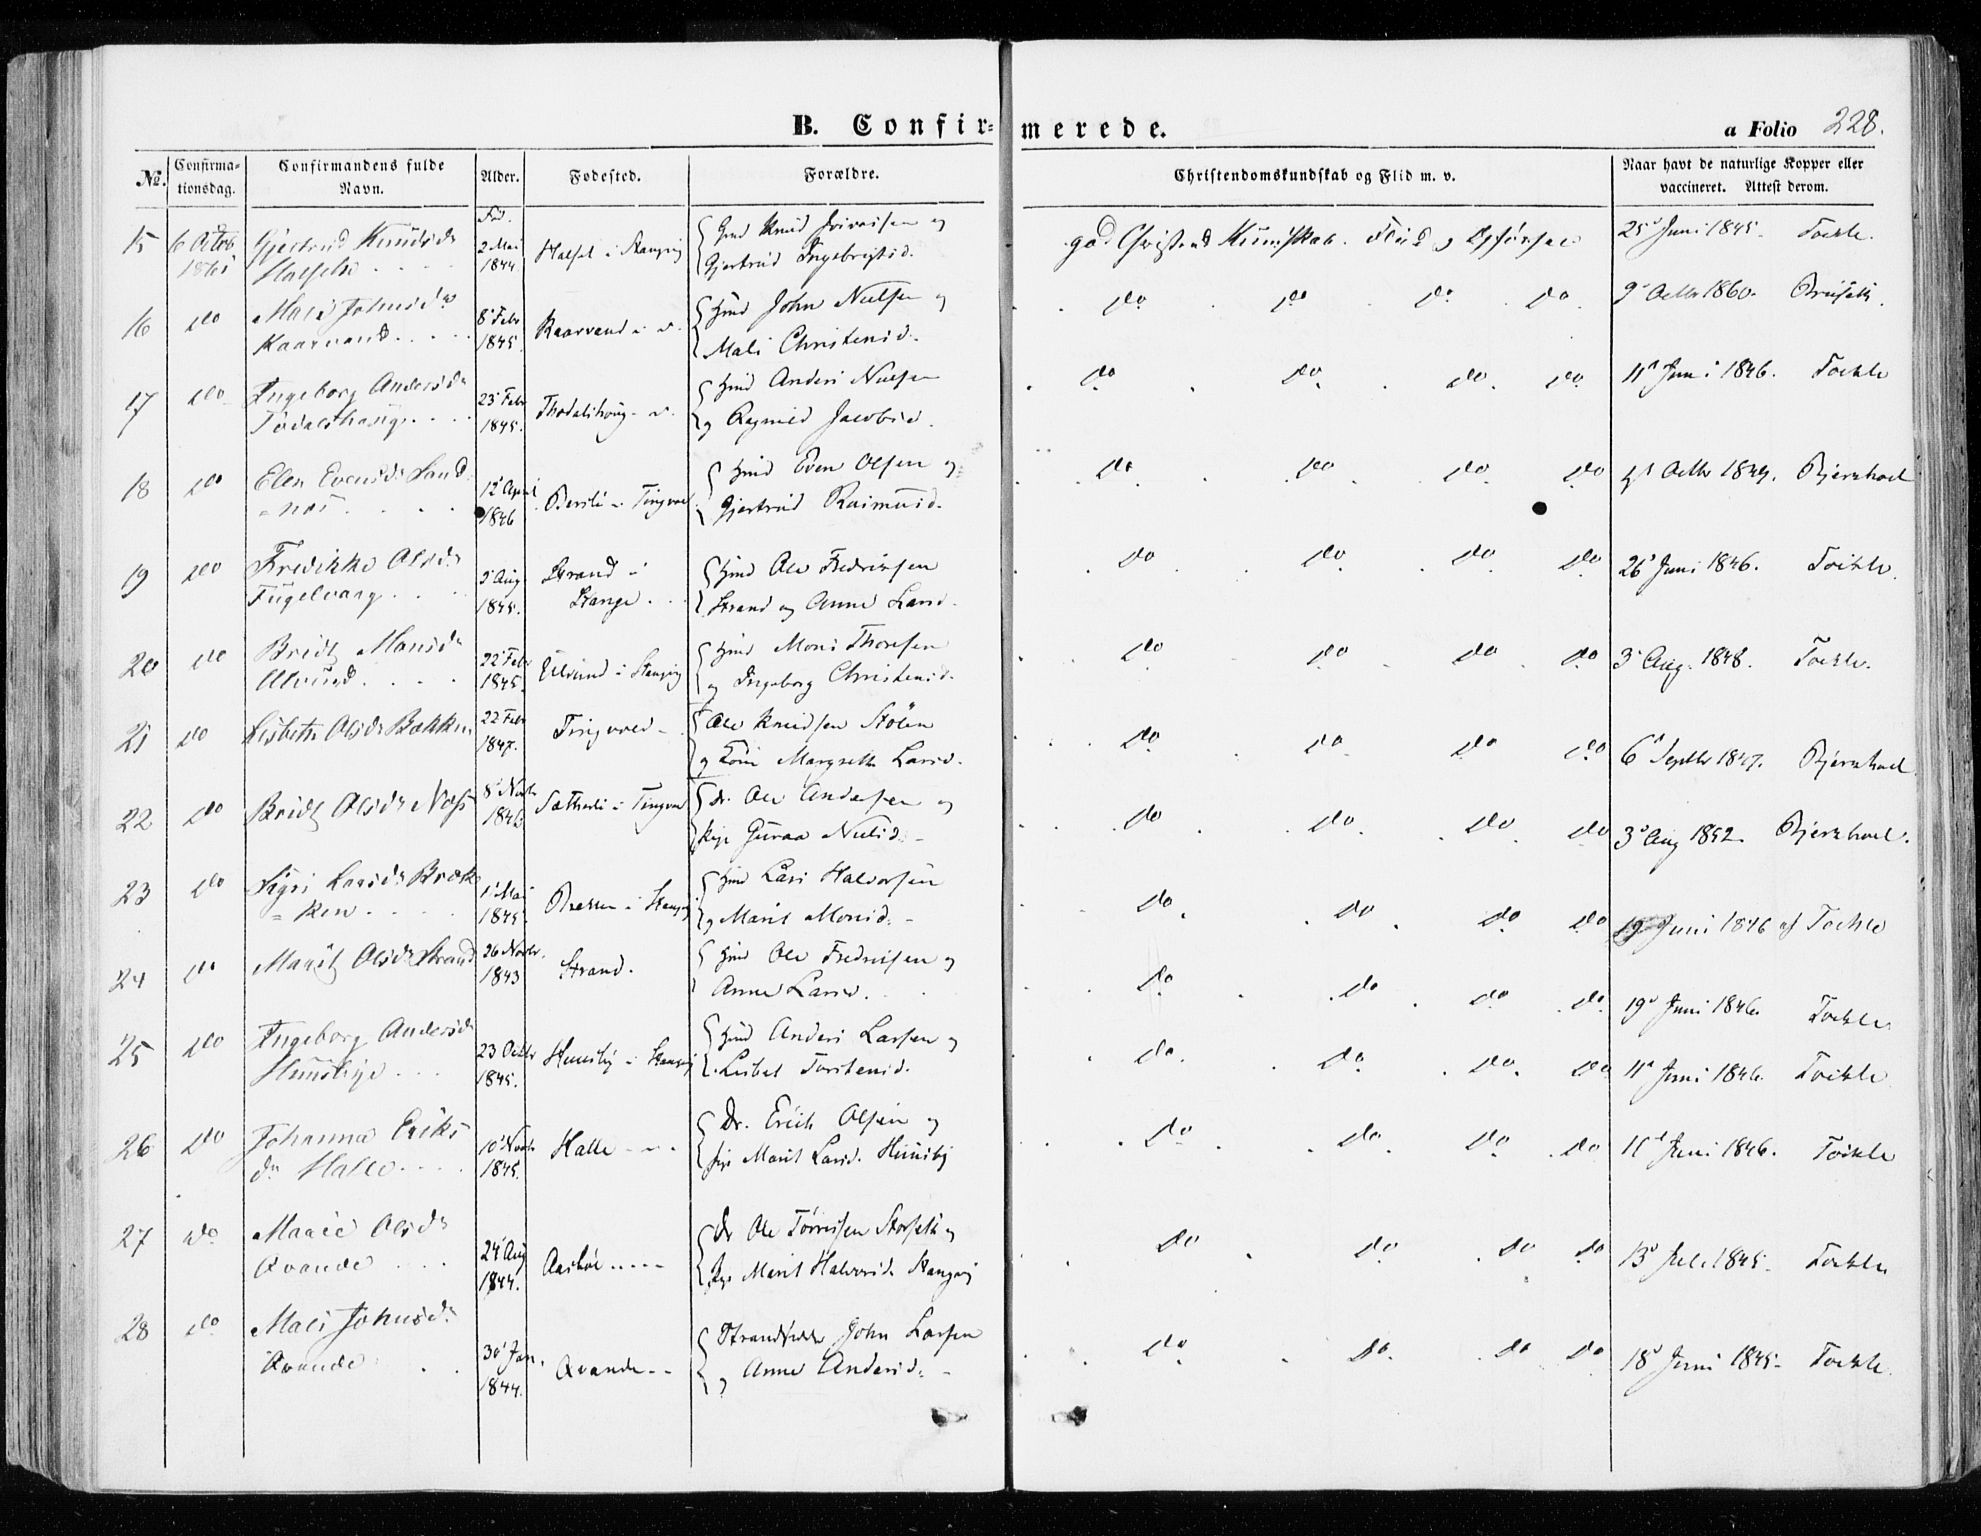 B. Confirmerede.
a Folio 228.
No. Confirmationsdag. Confirmandens fulde Navn. Alder. Fødested. Forældre. Christendomskundskab og Flid m. v. Naar havt de naturlige Kopper eller vaccineret. Attest derom.
15 6 Octob Gjertrud Knudsdr Fød. 2 Mai 1844 Halset i Stangvig Gmd Knud og Gjertrud Ingebrigtsd. god Christend Kundskab. Flid og Opførsel 25d Juni 1845. Toekle.
16 do Mali Johnsdr Kaarvand 8d Febr 1845 Kaarvand i d. Gmd John Nielsen og Mali Christensd. do do do do 9d Octbr 1860.
17 do Ingeborg Andersdr Todalshaug 23d Febr 1845. Gmd Anders Nielsen og Ragnild Jacobsd. do do do do 11d Juni 1846. Toekle
18 do Elen Evensdr Sandnæs 12d April 1846 i Tingvol Gmd Even Olsen og Gjertrud Rasmusd. do do do do Octbr 1849. Bjerkhoel
19 do Fredrikke Olsdr Fugelvaag Aug 1845. Strand i Stange Gmd Ole Fredriksen Strand og Anne Larsd. do do do do 26d Juni 1846. Toekle
20 do Bridt Monsdr Ulvund 22d Febr 1845. Ulvund i Stangvig Gmd Mons Thoresen og Ingeborg Christensd. do do do do 3d Aug. 1848. Toekle.
21 do Lisbeth Olsdr Bakken 22 Febr 1847. Tingvold Ole Knudsen Stølen og Kone Margreth Larsd. do do do do 6d Septbr 1847. Bjerkhoel
22 do Bridt Olsdr Næss 8d Novbr 1846 Sætherli i Tingvol Dr. Ole Andersen og Pige Guraa Nielsd. do do do do 3d Aug 1852. Bjerkhoel.
23 do Sigri Larsdr Brækken 1d Mai 1845. i Stangvig Gmd Lars Halvorsen og Marit Monsd. do do do do 19d Juni 1846 af Toekle
24 do Marit Olsdr Strand 26 Novbr. 1843 Strand. Gmd Ole Fredriksen og Anne Larsd. do do do do 19d Juni 1846. Toekle
25 do Ingeborg Andersdr Hunsbye 23 Octbr 1845. Hunsby i Stangvig Gmd Anders Larsen og Lisbet Torstensd. do do do do 11d Juni 1846. Toekle
26 do Johanna Eriksdr Halle 10d Novbr 1845. Halle Dr. Erich Olsen og Pige Marit Larsd. Hunsby do do do do 11d Juni 1846. Toekle
27 do Marie Olsdr Qvande 24d Aug 1844. Aasbøe Dr Ole Tørresen Storseth og Pige Marit Halvorsd. Stangvig do do do do 13d Juli 1845. Toekle
28 do Mali Johnsdr Qvande 30d Jan. 1844. Qvande Strandsidder John Larsen og Anne Andersd. do do do do 18d Juni 1845. Toekle.